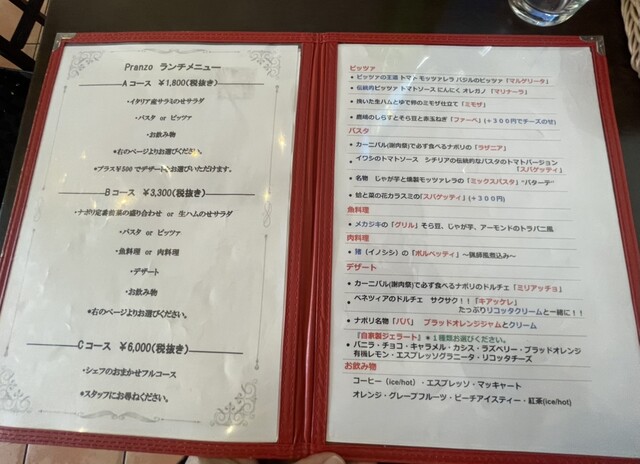 Pranzo ランチメニュー
Aコース ¥1,800(税抜き)
・イタリア産サラミのせサラダ
・パスタ or ピッツァ
・お飲み物
*右のページよりお選びください。
*プラス¥500でデザートお選びいただけます。
Bコース ¥3,300(税抜き)
・ナポリ定番前菜の盛り合わせ or 生ハムのせサラダ
・パスタ or ピッツァ
・魚料理 or 肉料理
・デザート
・お飲み物
*右のページよりお選びください。
Cコース ¥6,000(税抜き)
・シェフのおまかせフルコース
*スタッフにお尋ねください。
ピッツァ
• ピッツァの王道 トマト モッツァレラ バジルのピッツァ「マルゲリータ」
• 伝統的ピッツァ トマトソース にんにく オレガノ 「マリナーラ」
• 挽いた生ハムとゆで卵のミモザ仕立て「ミモザ」
• 鹿崎のしらすとそら豆と赤玉ねぎ「ファーベ」(+300円でチーズのせ)
パスタ
• カーニバル(謝肉祭)で必ず食べるナポリの「ラザニア」
• イワシのトマトソース シチリアの伝統的なパスタのトマトバージョン
「スパゲッティ」
• 名物 じゃが芋と燻製モッツァレラの「ミックスパスタ」"パターテ"
• 蛤と菜の花カラスミの「スパゲッティ」(+300円)
魚料理
• メカジキの「グリル」そら豆、じゃが芋、アーモンドのトラパニ風
肉料理
• 猪(イノシシ)の「ポルペッティ」～猟師風煮込み～
デザート
• カーニバル(謝肉祭)で必ず食べるナポリのドルチェ「ミリアッチョ」
• ベネツィアのドルチェ サクサク!!「キアッケレ」
たっぷりリコッタクリームと一緒に!!
• ナポリ名物「ババ」 ブラッドオレンジジャムとクリーム
「自家製ジェラート」*1種類お選びください。
• バニラ・チョコ・キャラメル・カシス・ラズベリー・ブラッドオレンジ
有機レモン・エスプレッソグラニータ・リコッタチーズ
お飲み物
コーヒー(ice/hot)・エスプレッソ・マッキャート
オレンジ・グレープフルーツ・ピーチアイスティー・紅茶(ice/hot)